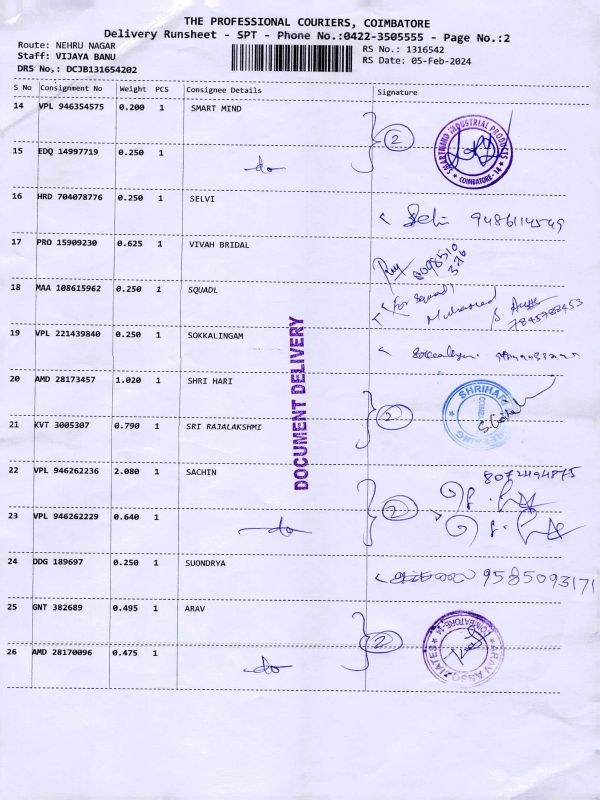 THE PROFESSIONAL COURIERS, COIMBATORE
Delivery Runsheet - SPT - Phone No.:0422-3505555 - Page No.:2
Route: NEHRU NAGAR
Staff: VIJAYA BANU
DRS No,: DCJB131654202
RS No.: 1316542
RS Date: 05-Feb-2024
S No Consignment No Weight PCS Consignee Details Signature
14 VPL 946354575 0.200 1 SMART MIND 2
SMARTMIND INDUSTRIAL PRODUCTS
* COIMBATORE-14 *
15 EDQ 14997719 0.250 1 do
16 HRD 704078776 0.250 1 SELVI
Selvi 9486114549
17 PRO 15909230 0.625 1 VIVAH BRIDAL
18 MAA 108615962 0.250 1 SQUADL
For Squadl
Muhamad
7845988453
19 VPL 221439840 0.250 1 SOKKALINGAM
20 AMD 28173457 1.020 1 SHRI HARI 2
SHRIHARI
21 KVT 3005307 0.790 1 SRI RAJALAKSHMI
DOCUMENT DELIVERY
22 VPL 946262236 2.080 1 SACHIN 2
8072494875
23 VPL 946262229 0.640 1 do
24 DDG 189697 0.250 1 SUONDRYA
9585093171
25 GNT 382689 0.495 1 ARAV 2
ARAV ASSOCIATES
COIMBATORE-14
26 AMD 28170096 0.475 1 do